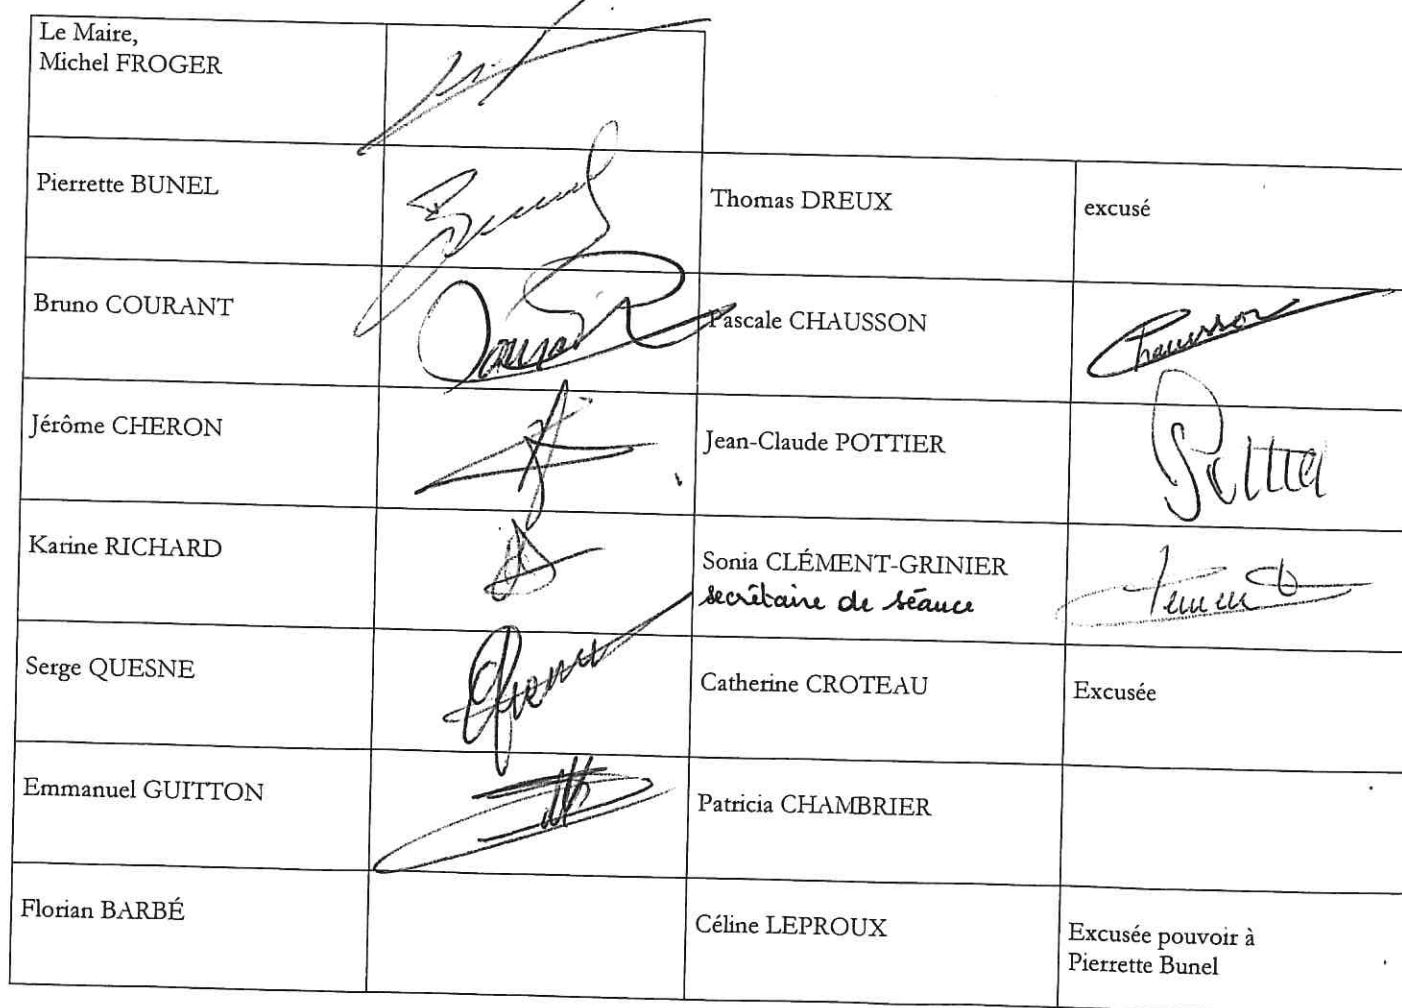 Le Maire,
Michel FROGER
Pierrette BUNEL
Thomas DREUX
excusé
Bruno COURANT
Pascale CHAUSSON
Chausson
Jérôme CHERON
Jean-Claude POTTIER
Karine RICHARD
Sonia CLÉMENT-GRINIER
secrétaire de séance
Serge QUESNE
Catherine CROTEAU
Excusée
Emmanuel GUITTON
Patricia CHAMBRIER
Florian BARBÉ
Céline LEPROUX
Excusée pouvoir à
Pierrette Bunel